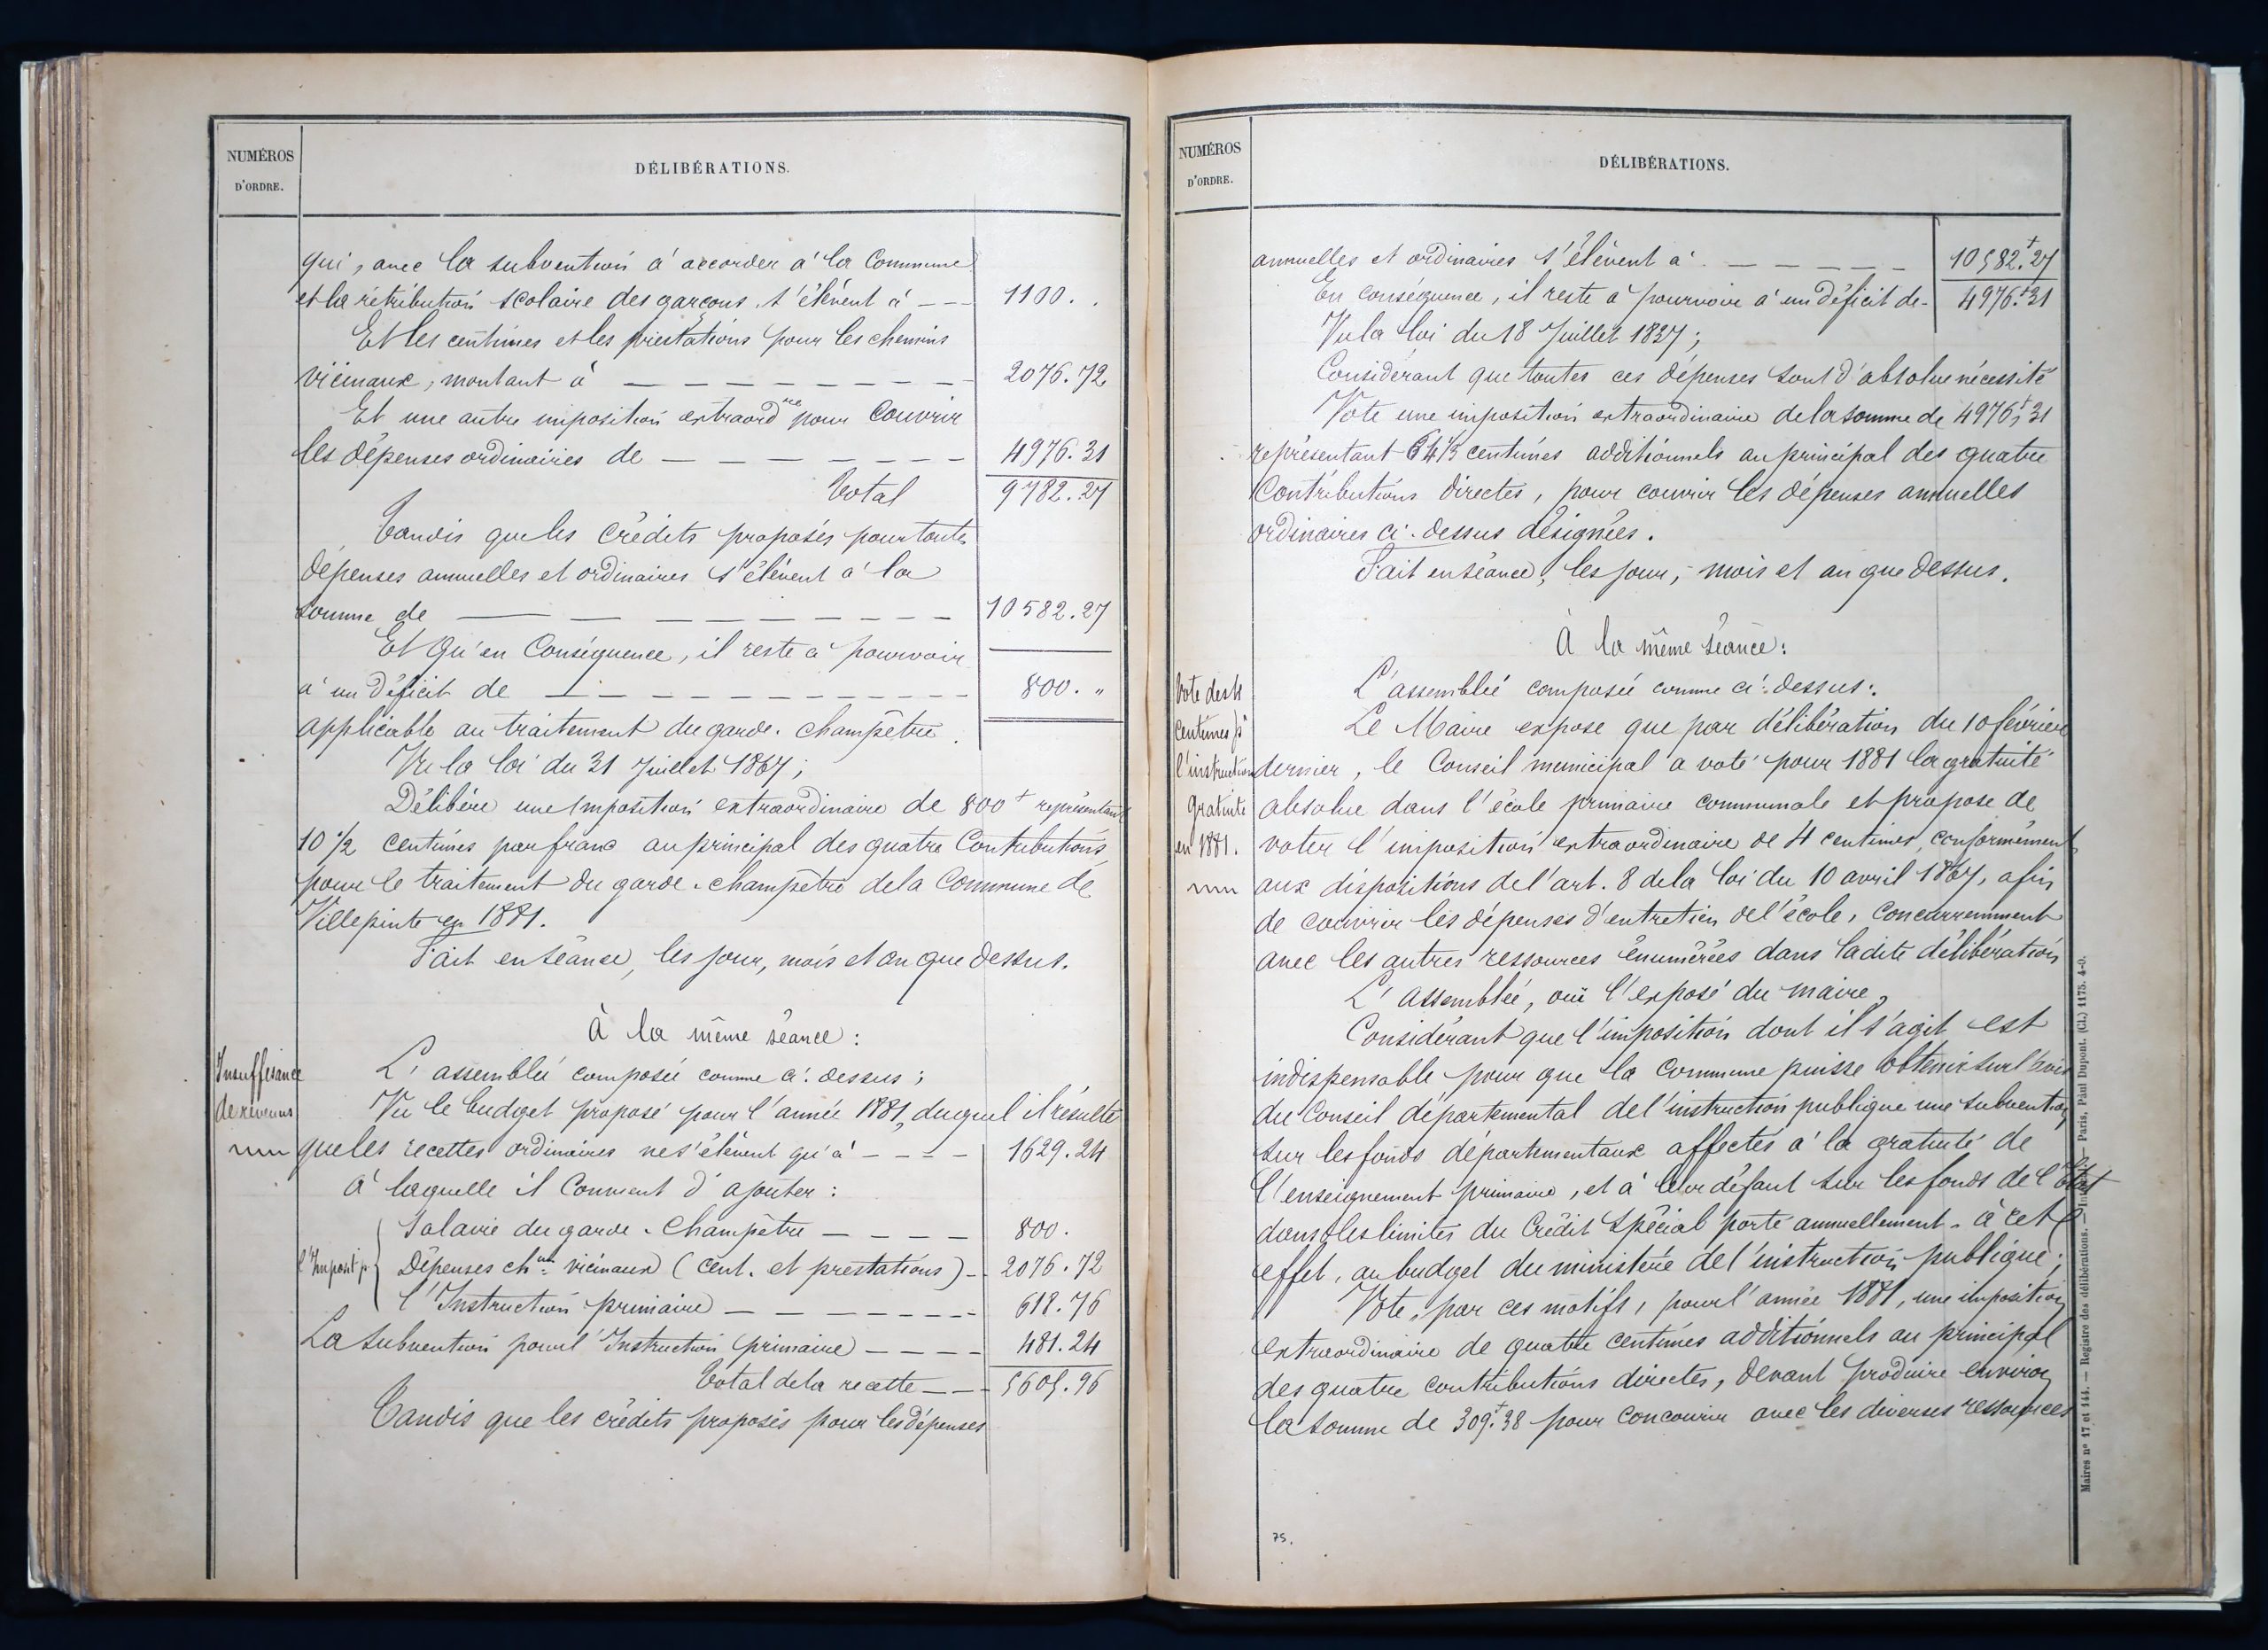 NUMÉROS
D'ORDRE.
DÉLIBÉRATIONS.
qui, avec la subvention à accorder à la Commune
et la rétribution scolaire des garçons, s'élèvent à — — 1100. .
Et les centimes et les prestations pour les chemins
vicinaux, montant à — — — — — — — — — 2076.72
Et une autre imposition extraord.re pour couvrir
les dépenses ordinaires de — — — — — — — 4976.31
Total 9782.27
Tandis que les crédits proposés pour toutes
dépenses annuelles et ordinaires s'élèvent à la
somme de — — — — — — — — — 10582.27
Et qu'en conséquence, il reste à pourvoir
à un déficit de — — — — — — — — — — 800. "
applicable au traitement du garde-champêtre.
Vu la loi du 31 Juillet 1867;
Délibère une Imposition extraordinaire de 800f représentant
10 1/2 centimes par franc au principal des quatre Contributions,
pour le traitement du garde-champêtre de la Commune de
Villepinte en 1881.
Fait en séance, les jour, mois et an que dessus.
À la même séance:
Insuffisance
de revenus
L'assemblée composée comme ci-dessus;
Vu le budget proposé pour l'année 1881, duquel il résulte
que les recettes ordinaires ne s'élèvent qu'à — — — — 1629.24
à laquelle il convient d'ajouter:
Salaire du garde-Champêtre — — — — 800.
l'Imposit. p. Dépenses ch.ins vicinaux (cent. et prestations) — 2076.72
l'Instruction primaire — — — — — — — 618.76
La subvention pour l'Instruction primaire — — — — 481.24
Total de la recette — — — 5605.96
Tandis que les crédits proposés pour les dépenses
NUMÉROS
D'ORDRE.
DÉLIBÉRATIONS.
annuelles et ordinaires s'élèvent à — — — — — 10582f.27
En conséquence, il reste à pourvoir à un déficit de — 4976f.31
Vu la loi du 18 Juillet 1837;
Considérant que toutes ces dépenses sont d'absolue nécessité
Vote une imposition extraordinaire de la somme de 4976f,31
représentant 64 1/3 centimes additionnels au principal des quatre
Contributions directes, pour couvrir les dépenses annuelles
ordinaires ci-dessus désignées.
Fait en séance, les jour, mois et an que dessus.
À la même séance:
Vote des 4
centimes pr
l'instruction
gratuite
en 1881.
L'assemblée composée comme ci-dessus:
Le Maire expose que par délibération du 10 février
dernier, le Conseil municipal a voté pour 1881 la gratuité
absolue dans l'école primaire communale et propose de
voter l'imposition extraordinaire de 4 centimes, conformément
aux dispositions de l'art. 8 de la loi du 10 avril 1867, afin
de couvrir les dépenses d'entretien de l'école, concurremment
avec les autres ressources énumérées dans ladite délibération
L'assemblée, ouï l'exposé du maire,
Considérant que l'imposition dont il s'agit est
indispensable pour que la Commune puisse obtenir sur l'avis
du Conseil départemental de l'instruction publique une subvention
sur les fonds départementaux affectés à la gratuité de
l'enseignement primaire, et à leur défaut sur les fonds de l'État
dans les limites du Crédit spécial porté annuellement à cet
effet, au budget du ministère de l'instruction publique;
Vote, par ces motifs, pour l'année 1881, une imposition
extraordinaire de quatre centimes additionnels au principal
des quatre contributions directes, devant produire environ
la somme de 309f.38 pour concourir avec les diverses ressources
75.
Maires nos 17 et 144. — Registre des délibérations. — Paris, Paul Dupont. (Cl.) 1175. 4-0.